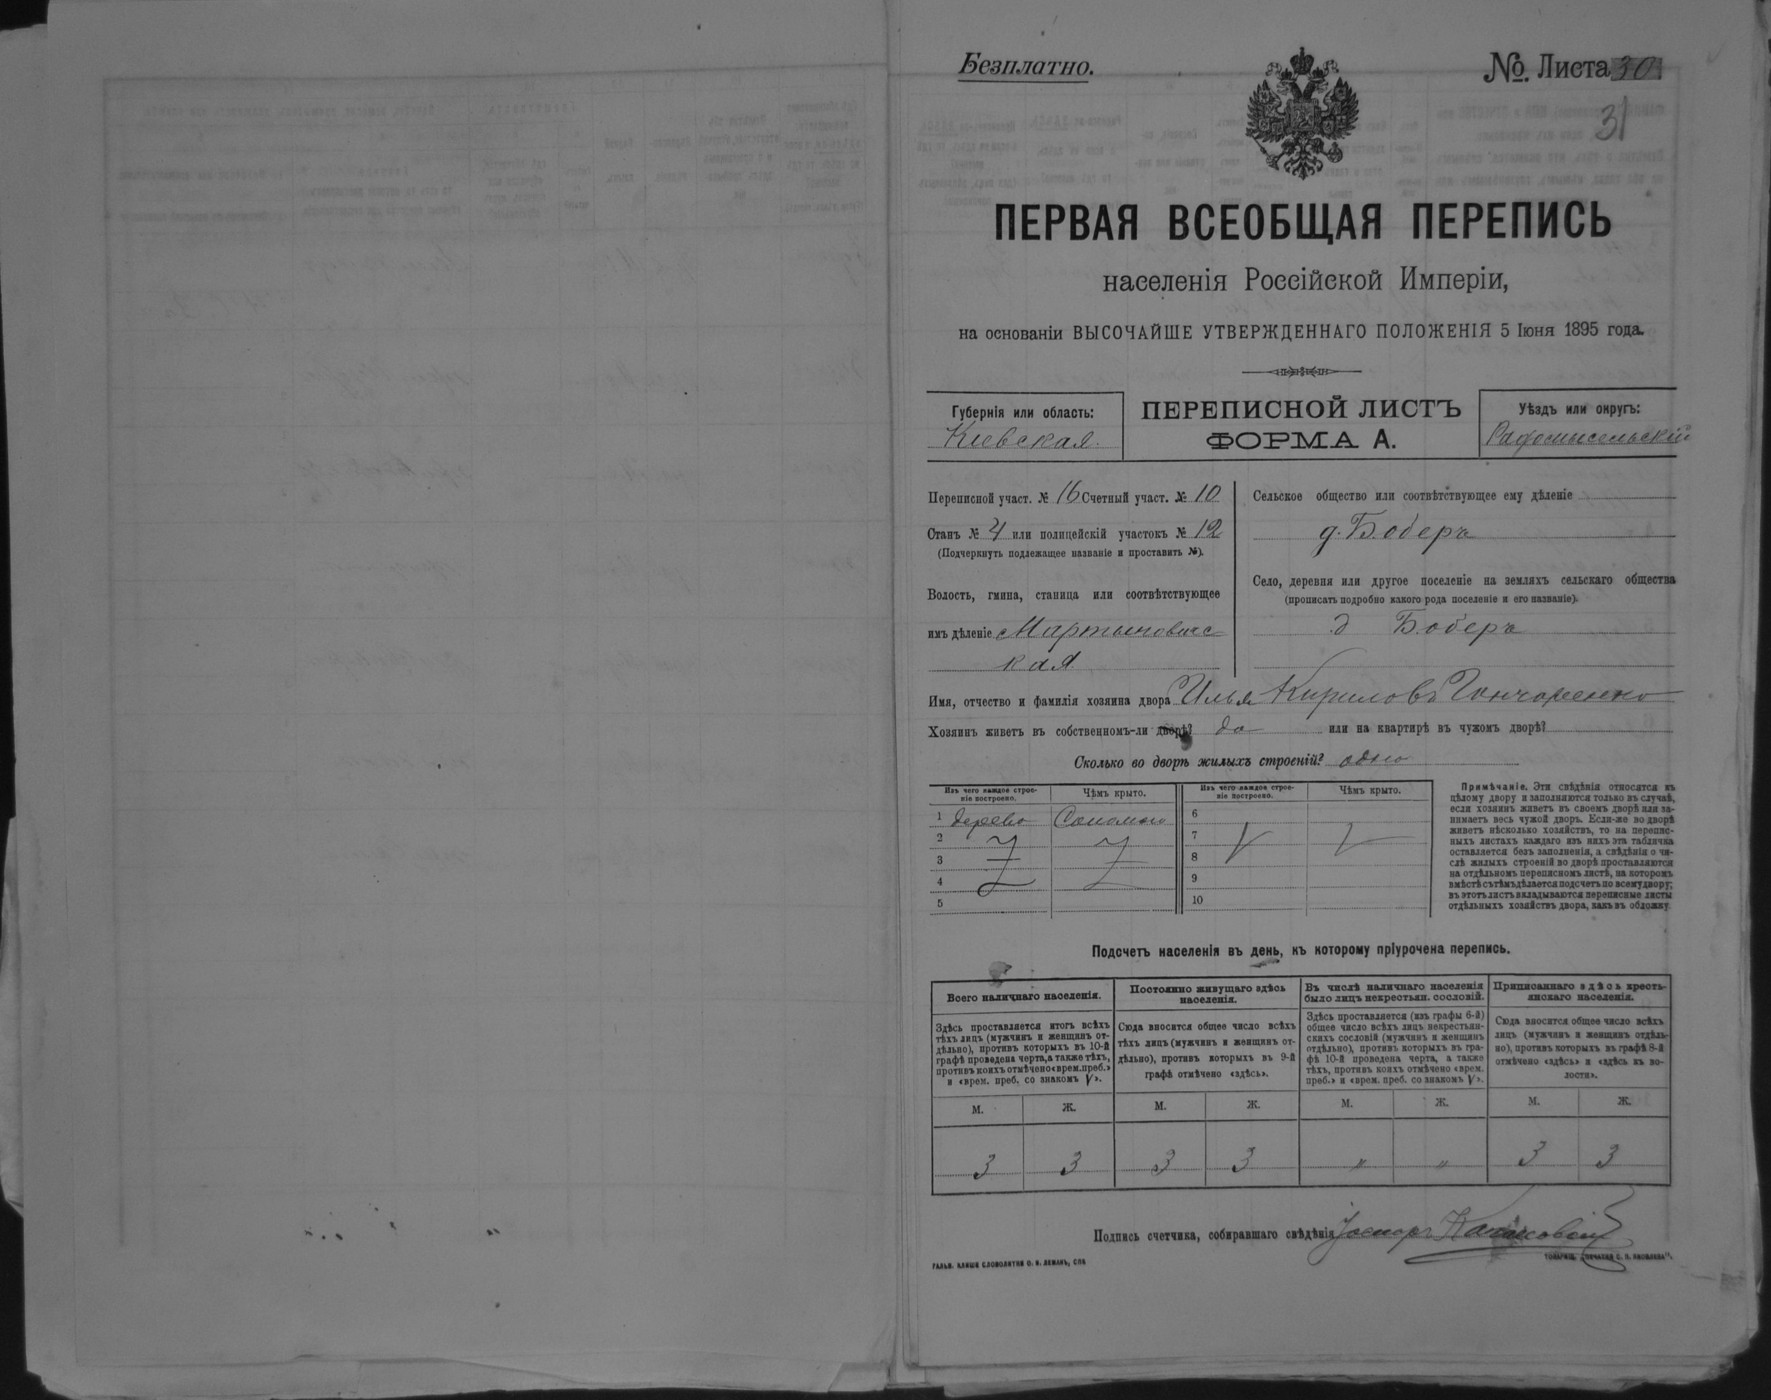 Безплатно.
№ Листа 30
31
ПЕРВАЯ ВСЕОБЩАЯ ПЕРЕПИСЬ
населенія Россійской Имперіи,
на основаніи ВЫСОЧАЙШЕ УТВЕРЖДЕННАГО ПОЛОЖЕНІЯ 5 Іюня 1895 года.
Губернія или область:
Кіевская.
ПЕРЕПИСНОЙ ЛИСТЪ
ФОРМА А.
Уѣздъ или округъ:
Радомысельскій
Переписной участ. № 16 Счетный участ. № 10
Станъ № 4 или полицейскій участокъ № 12
(Подчеркнуть подлежащее названіе и проставить №).
Волость, гмина, станица или соотвѣтствующее
имъ дѣленіе Мартыновис-
кая
Сельское общество или соотвѣтствующее ему дѣленіе
д. Боберъ
Село, деревня или другое поселеніе на земляхъ сельскаго общества
(прописать подробно какого рода поселеніе и его названіе).
д Боберъ
Имя, отчество и фамилія хозяина двора Илья Кириловъ Гончаренко
Хозяинъ живетъ въ собственномъ-ли дворѣ? да или на квартирѣ въ чужомъ дворѣ?
Сколько во дворѣ жилыхъ строеній? одно
Изъ чего каждое строе-
ніе построено.
Чѣмъ крыто.
Изъ чего каждое строе-
ніе построено.
Чѣмъ крыто.
1 дерево Соломою
2
3
4
5
6
7
8
9
10
Примѣчаніе. Эти свѣдѣнія относятся къ
цѣлому двору и заполняются только въ случаѣ,
если хозяинъ живетъ въ своемъ дворѣ или за-
нимаетъ весь чужой дворъ. Если-же во дворѣ
живетъ нѣсколько хозяйствъ, то на перепис-
ныхъ листахъ каждаго изъ нихъ эта табличка
оставляется безъ заполненія, а свѣдѣнія о чи-
слѣ жилыхъ строеній во дворѣ проставляются
на отдѣльномъ переписномъ листѣ, на которомъ
вмѣстѣ съ тѣмъ дѣлается подсчетъ по всему двору;
въ этотъ листъ вкладываются переписные листы
отдѣльныхъ хозяйствъ двора, какъ въ обложку.
Подсчетъ населенія въ день, къ которому пріурочена перепись.
Всего наличнаго населенія.
Здѣсь проставляется итогъ всѣхъ
тѣхъ лицъ (мужчинъ и женщинъ от-
дѣльно), противъ которыхъ въ 10-й
графѣ проведена черта, а также тѣхъ,
противъ коихъ отмѣчено «врем. преб.»
и «врем. преб. со знакомъ V».
Постоянно живущаго здѣсь
населенія.
Сюда вносится общее число всѣхъ
тѣхъ лицъ (мужчинъ и женщинъ от-
дѣльно), противъ которыхъ въ 9-й
графѣ отмѣчено «здѣсь».
Въ числѣ наличнаго населенія
было лицъ некрестьян. сословій.
Здѣсь проставляется (изъ графы 6-й)
общее число всѣхъ лицъ некрестьян-
скихъ сословій (мужчинъ и женщинъ
отдѣльно), противъ которыхъ въ гра-
фѣ 10-й проведена черта, а также
тѣхъ, противъ коихъ отмѣчено «врем.
преб.» и «врем. преб. со знакомъ V».
Приписаннаго здѣсь кресть-
янскаго населенія.
Сюда вносится общее число всѣхъ
лицъ (мужчинъ и женщинъ отдѣль-
но), противъ которыхъ въ графѣ 8-й
отмѣчено «здѣсь» и «здѣсь въ во-
лости».
М. Ж. М. Ж. М. Ж. М. Ж.
3 3 3 3 " " 3 3
Подпись счетчика, собиравшаго свѣдѣнія
ГАЛЬВ. КЛИШЕ СЛОВОЛИТНИ О. И. ЛЕМАНЪ, СПБ
ТОВАРИЩ. „ПЕЧАТНИ С. П. ЯКОВЛЕВА“.